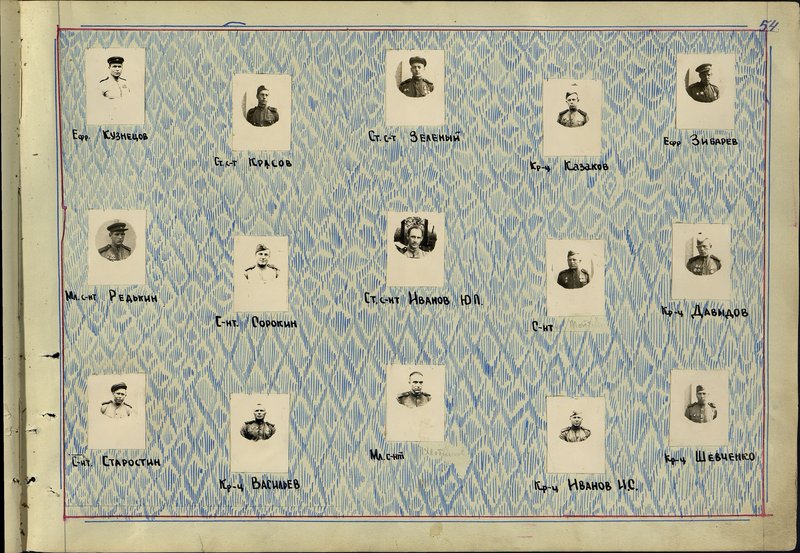 54
Ефр. Кузнецов
Ст. с-т Красов
Ст. с-т Зеленый
Кр-ц Казаков
Ефр Зибарев
Мл. с-нт Редькин
С-нт. Сорокин
Ст. с-нт Иванов Ю.П.
С-нт
Кр-ц Давыдов
С-нт. Старостин
Кр-ц Васильев
Мл. с-нт
Кр-ц Иванов И.С.
Кр-ц Шевченко